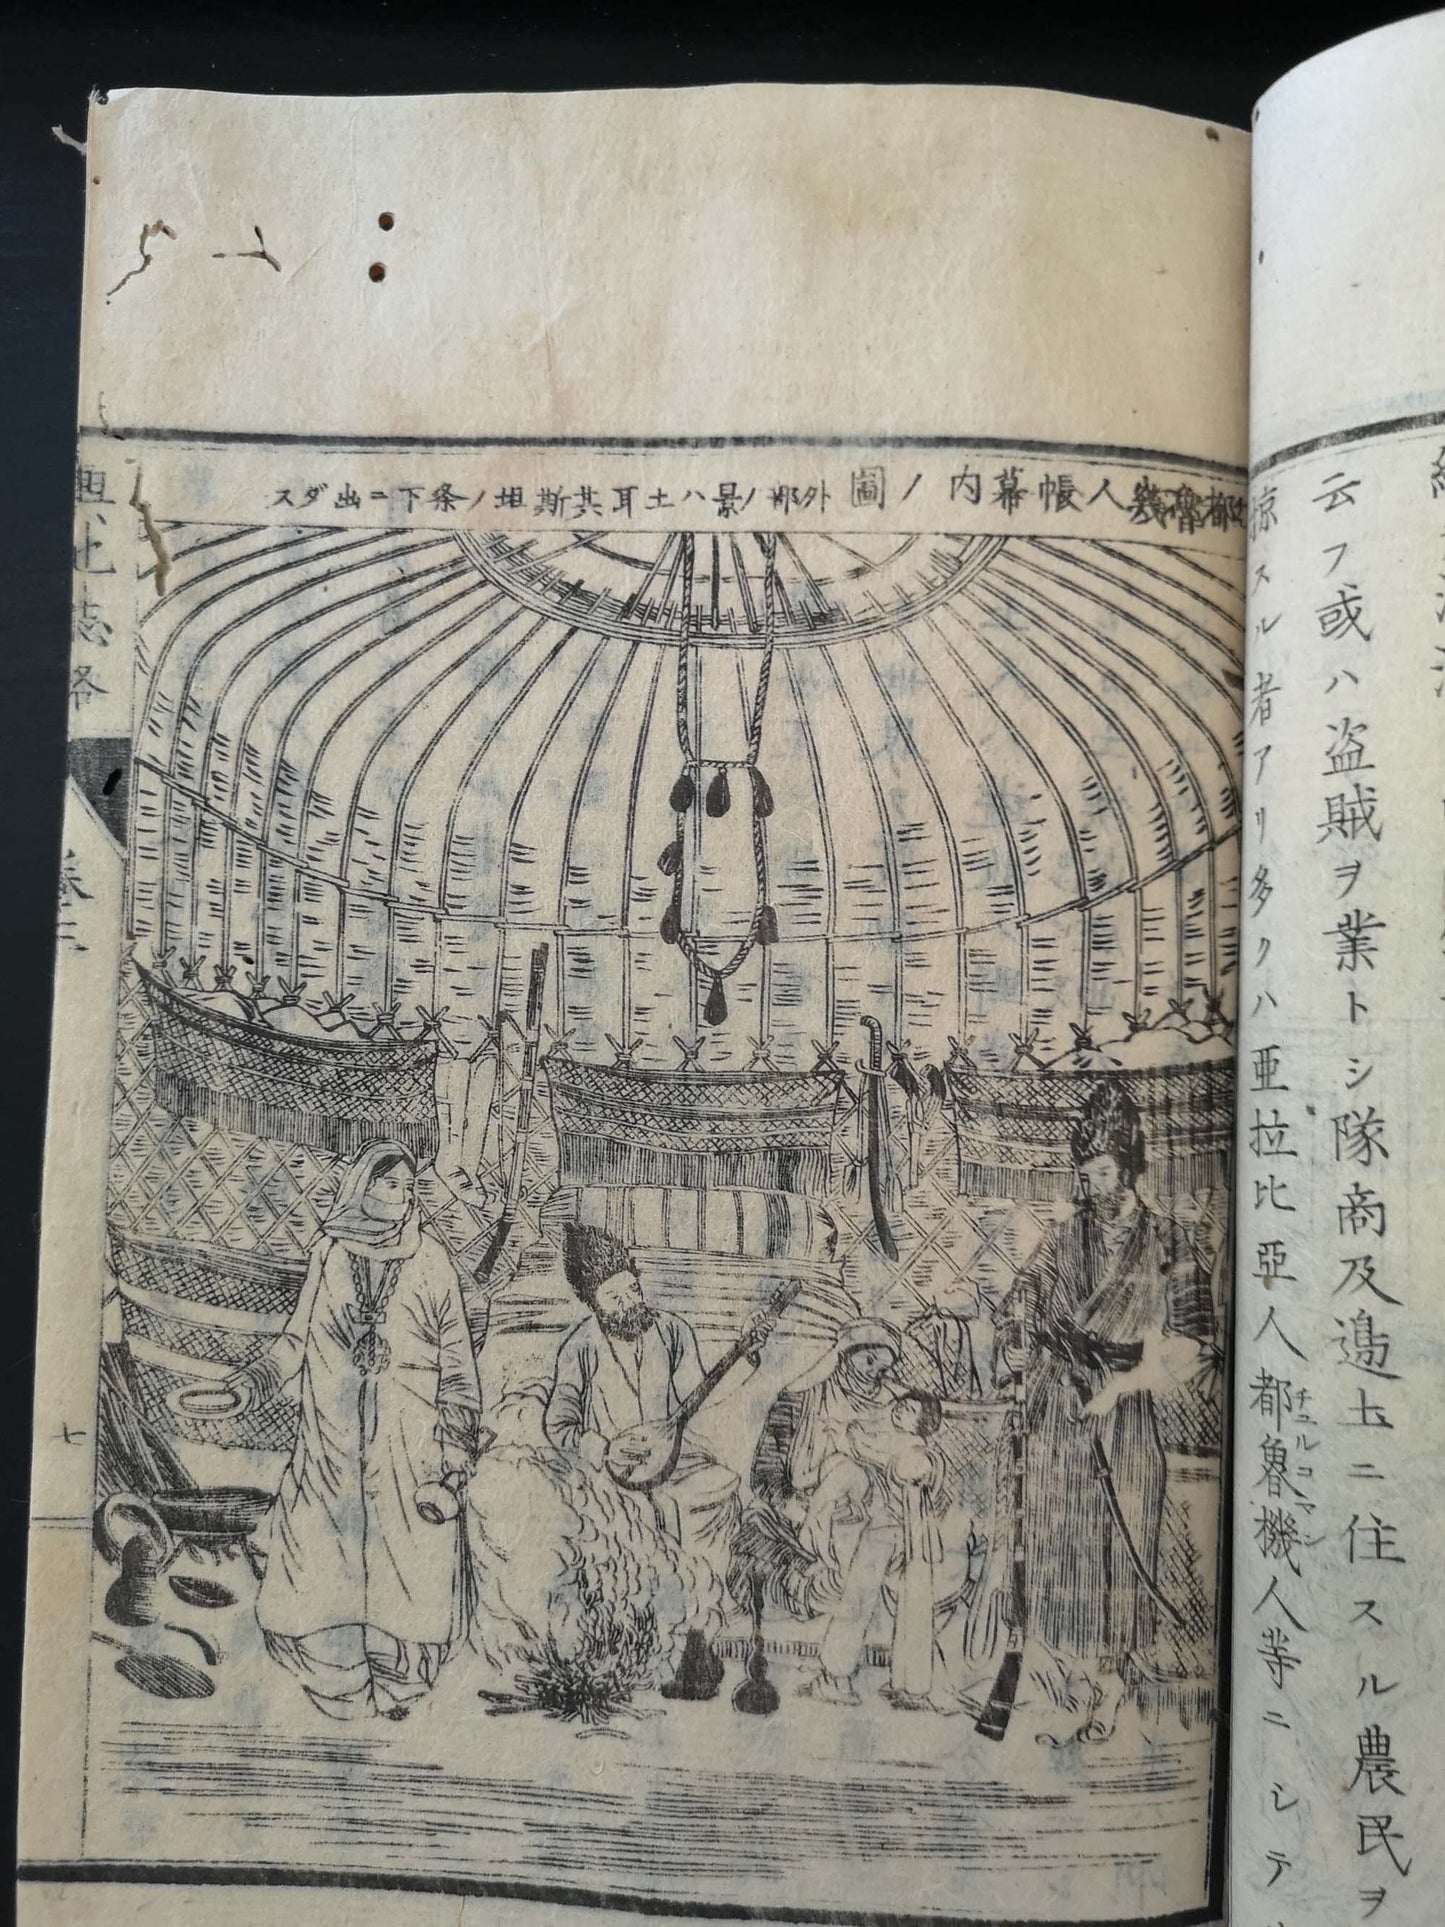 云フ或ハ盗賊ヲ業トシ隊商及邉土ニ住スル農民ヲ
掠スル者アリ多クハ亜拉比亞人都魯機人等ニシテ
チュルコマン
都魯幾人帳幕内ノ圖
外部ノ景ハ土耳其斯坦ノ条下ニ出ダス
輿地志略
巻三
七